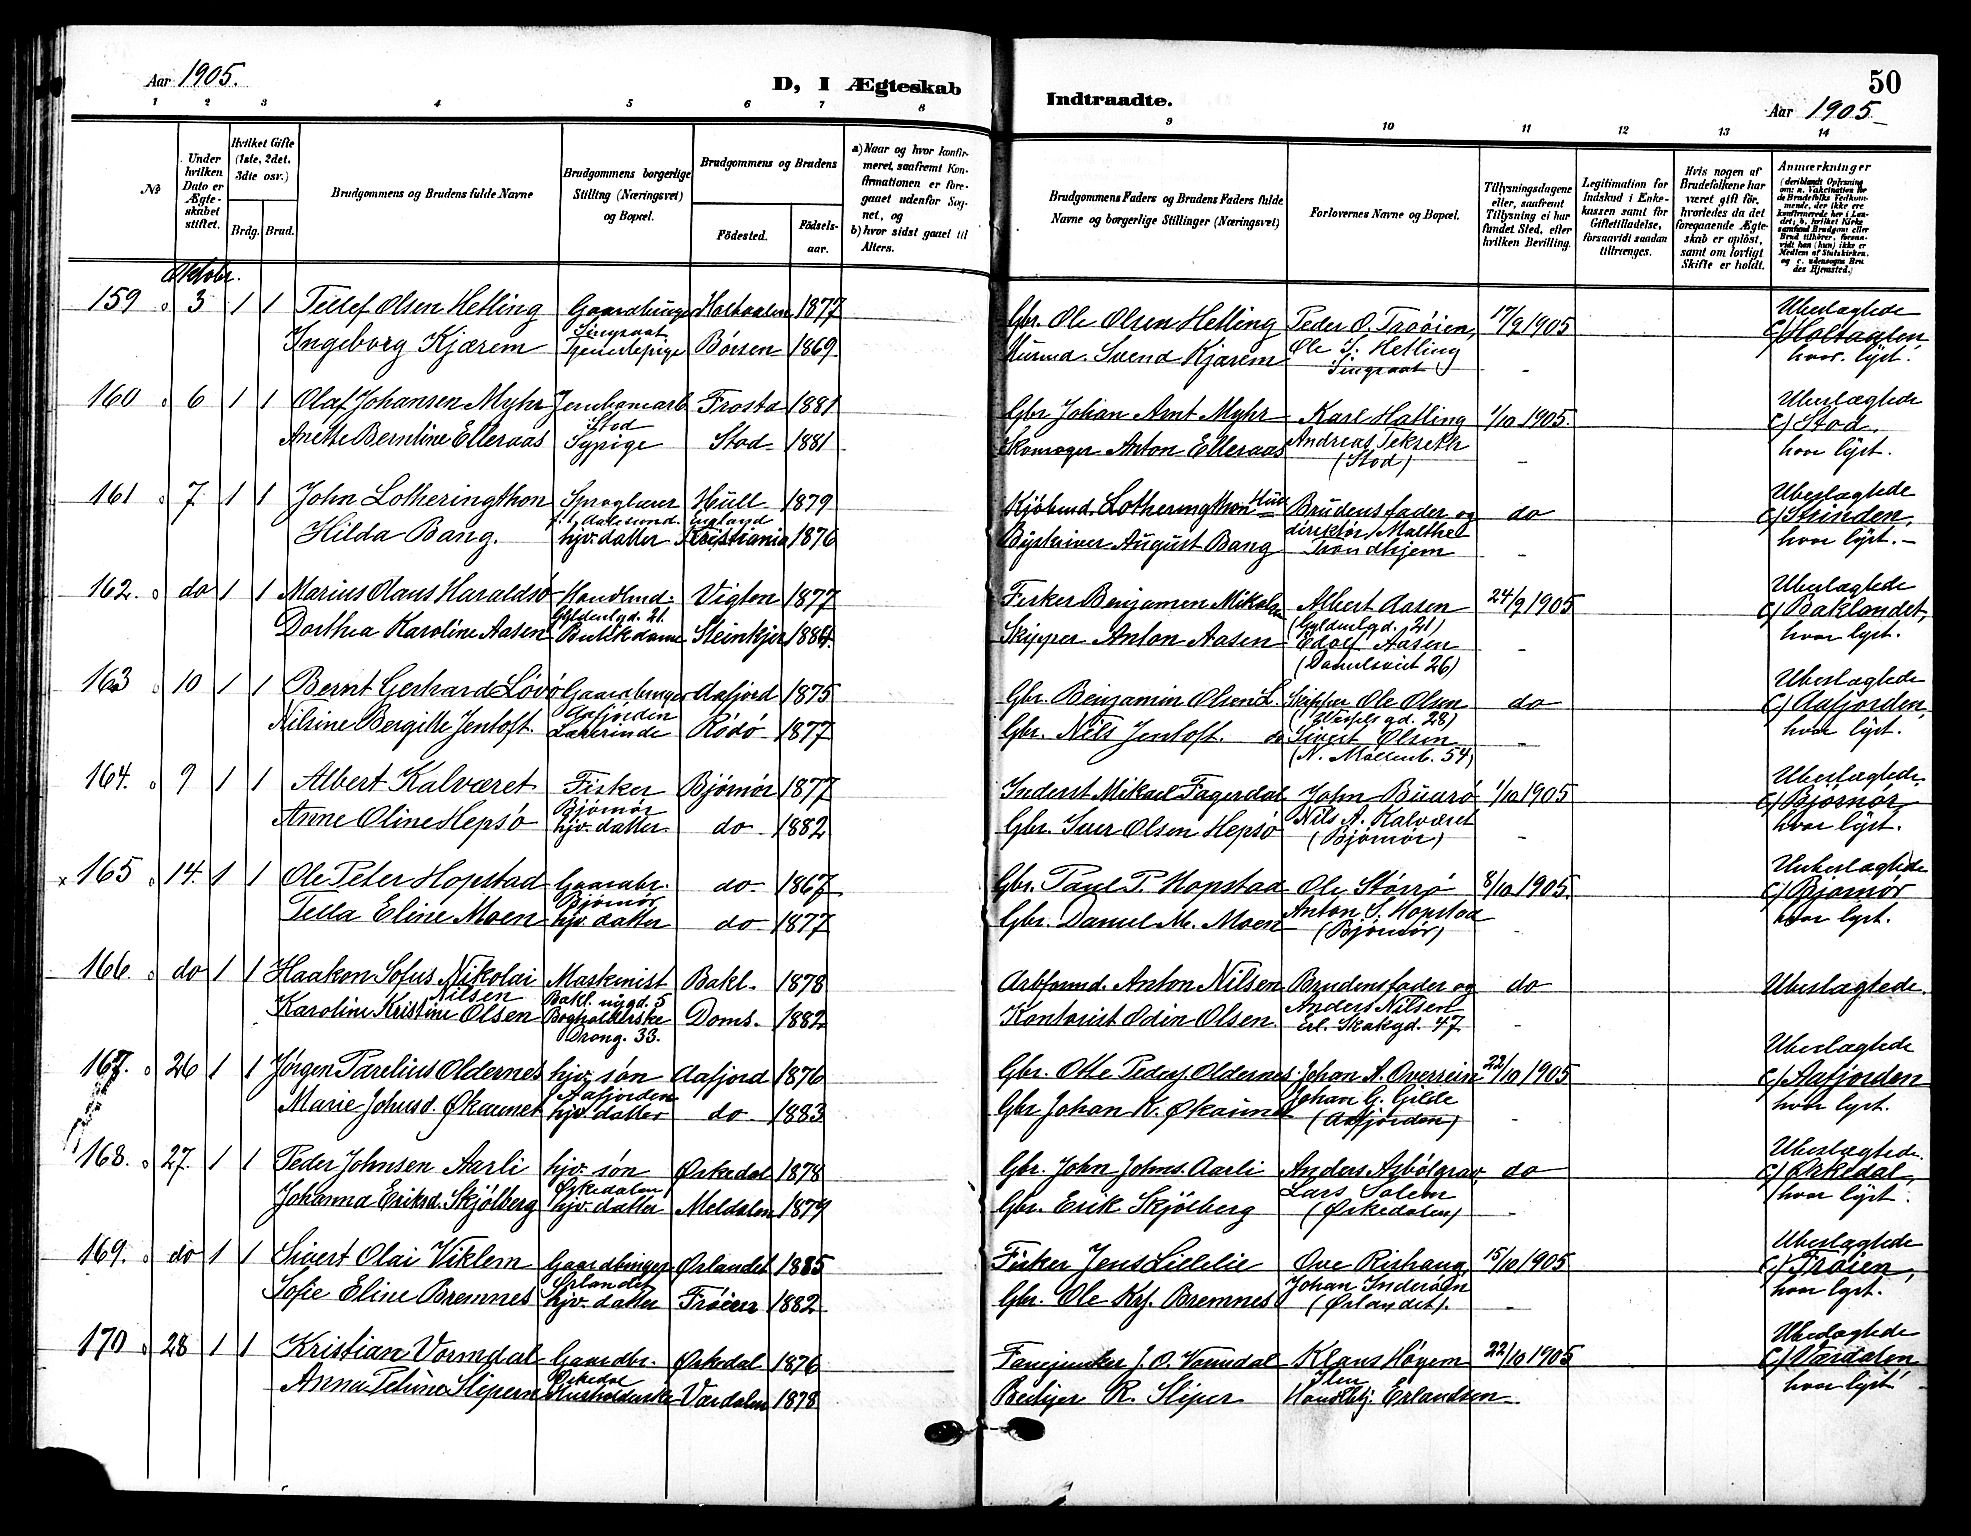 Aar 1905.
D, I Ægteskab
Indtraadte.
50
Aar 1905
1 2 3 4 5 6 7 8
9 10 11 12 13 14
No
Under hvilken Dato er Ægteskabet stiftet.
Hvilket Gifte (1ste, 2det, 3dte osv.)
Brdg. Brud.
Brudgommens og Brudens fulde Navne
Brudgommens borgerlige Stilling (Næringsvei) og Bopæl.
Brudgommens og Brudens
Fødested.
Fødsels-aar.
a) Naar og hvor konfirmeret, saafremt Konfirmationen er foregaaet udenfor Sognet, og
b) hvor sidst gaaet til Alters.
Brudgommens Faders og Brudens Faders fulde Navne og borgerlige Stillinger (Næringsvei)
Forlovernes Navne og Bopæl.
Tillysningsdagene eller, saafremt Tillysning ei har fundet Sted, efter hvilken Bevilling.
Legitimation for Indskud i Enkekassen samt for Giftetilladelse, forsaavidt saadan tiltrænges.
Hvis nogen af Brudefolkene har været gift før, hvorledes da det foregaaende Ægteskab er opløst, samt om lovligt Skifte er holdt.
Anmærkninger
Oktobr.
159 3 1 1 Tellef Olsen Hetling Gaardbruger Holtaalen 1877 Gbr. Ole Olsen Hetling Peder O. Trøien, 17/9 1905 Ubeslægtede
Singsaat
Ingeborg Kjærem Tjenestepige Børsen 1869 Svend Kjærem Ole S. Hetling c/ Holtaalen,
Singsaat - hvor lyst.
160 6 1 1 Olaf Johansen Myhr Jernbanearb Frosta 1881 Gbr Johan Arnt Myhr Karl Hatling 1/10 1905. Ubeslægtede
Stod
Anette Berntine Elleraas Sypige Stod 1881 Skomager Anton Elleraas Andreas Tekseth c/ Stod,
(Stod) - hvor lyst.
161 7 1 1 John Lotheringthon Sproglærer Hull 1879 Kjøbmd. Lotheringthon Hull Brudens fader og do Ubeslægtede
England
Hilda Bang. hjv. datter Kristiania 1876 Byskriver August Bang direktør Malthe c/ Strinden,
Trondhjem - hvor lyst.
162. do 1 1 Marius Olaus Haraldsø Handlmd. Vigten 1877 Fisker Benjamin Mikals Albert Aasen 24/9 1905 Ubeslægtede
Gyldenlgd. 21. (Gyldenlgd. 21)
Dorthea Karoline Aasen Butikdame Steinkjer 1884. Skipper Anton Aasen Edolf Aasen c/ Baklandet,
(Danielsveit 26) - hvor lyst.
163 10 1 1 Bernt Gerhard Løvø Gaardbruger Aafjord 1875 Gbr. Benjamin Olsen L. Skipper Ole Olsen do Ubeslægtede
Aafjorden
Nilsine Bergitte Jentoft. Lærerinde Rødø 1877 Gbr. Nils Jentoft. Sivert Olsen - c/ Aafjorden,
hvor lyst.
164. 9 1 1 Albert Kalværet Fisker Bjørnør 1877 Inderst Mikael Fagerdal John Buarø 1/10 1905 Ubeslægtede
Bjørnør
Anne Oline Hepsø hjv. datter do 1882 Gbr. Iver Olsen Hepsø Nils A. Kalværet c/ Bjørnør
(Bjørnør) - hvor lyst.
x 165 14. 1 1 Ole Peter Hopstad Gaardbr. do 1867 Gbr. Paul P. Hopstad Ole Størrø 8/10 1905. Ubeslægtede
Bjørnør
Tella Eline Moen hjv. datter do 1877 Gbr. Daniel M. Moen Anton S. Hopstad c/ Bjørnør
(Bjørnør) - hvor lyst.
166. do 1 1 Haakon Sofus Nikolai Maskinist Bakl. 1878 Arbformd. Anton Nilsen Brudens fader og do Ubeslægtede.
Nilsen Bakl. nygd. 5
Karoline Kristine Olsen Bogholderske Doms. 1882 Kontorist Odin Olsen Anders Nilsen -
Drong. 33. Erl. Skakgd. 47
167. 26 1 1 Jørgen Parelius Oldernes hjv. søn Aafjord 1876 Gbr. Otte Peders. Oldernes Johan A. Overrein 22/10 1905 Ubeslægtede
Aafjorden
Marie Johnsd. Økaunet hjv. datter do 1883 Gbr Johan K. Økaunet Johan G. Gilde c/ Aafjorden
(Aafjorden) - hvor lyst.
168. 27. 1 1 Peder Johnsen Aarli hjv. søn Ørkedal 1878 Gbr. John Johns. Aarli Anders Asbølgrav do Ubeslægtede.
Ørkedalen
Johanna Eriksd. Skjølberg hjv. datter Meldalen 1879 Gbr. Erik Skjølberg Lars Solem c/ Ørkedal,
(Ørkedalen) - hvor lyst.
169. do 1 1 Sivert Olai Viklem Gaardbruger Ørlandet 1885 Fisker Jens Lidelie Ove Rishaug 15/10 1905 Ubeslægtede
Ørlandet
Sofie Eline Bremnes hjv. datter Frøien 1882 Gbr. Ole Krf. Bremnes Johan Inderøen c/ Frøien,
(Ørlandet). - hvor lyst.
170 28 1 1 Kristian Vormdal Gaardbr. Ørkedal 1876 J. O. Vormdal Klaus Høyem 22/10 1905 Ubeslægtede
Ørkedal Ilen
Anna Petrine Slipern Husholderske Værdalen 1878 R. Sliper Handlbtj. Erlandsen c/ Værdalen
hvor lyst